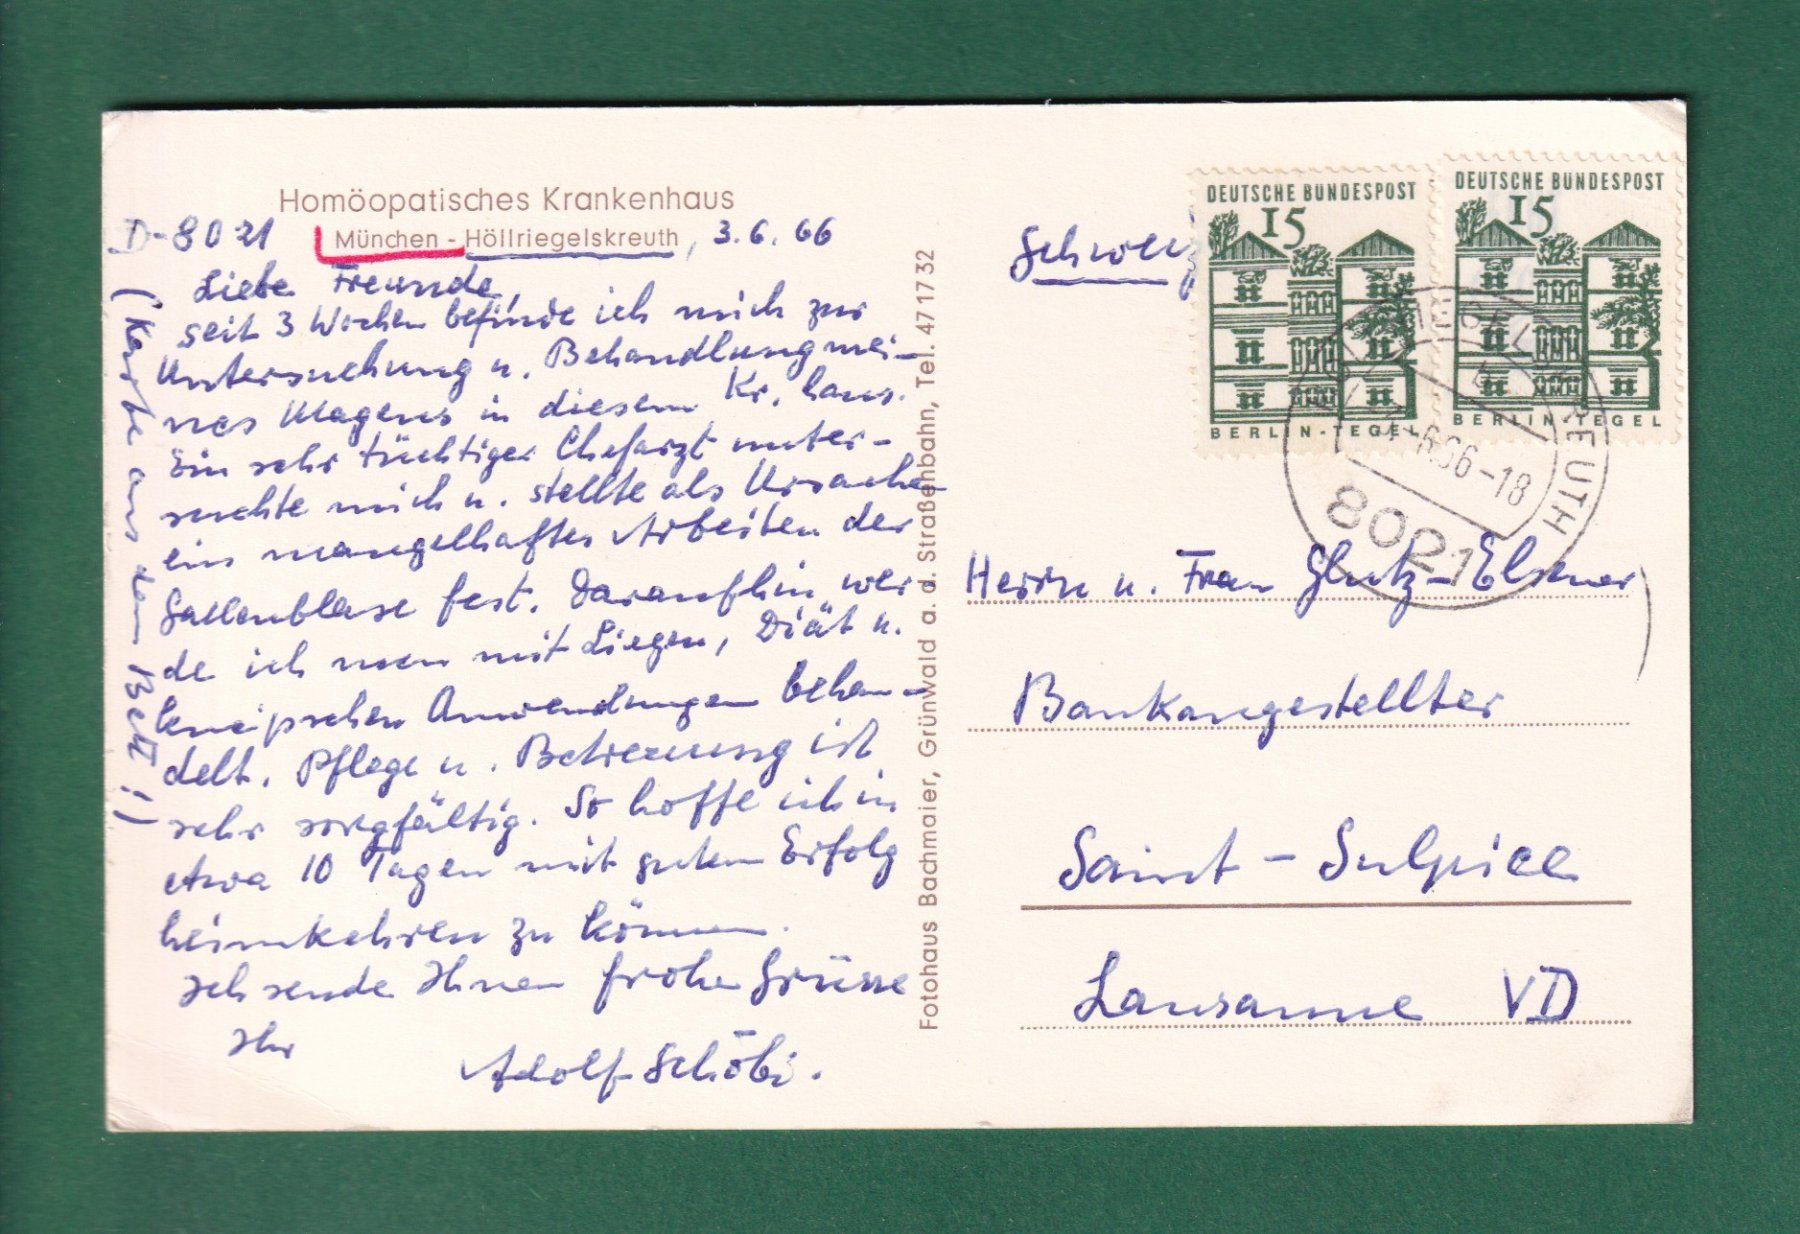 Homöopatisches Krankenhaus
D-8021 München - Höllriegelskreuth, 3.6.66
Liebe Freunde,
seit 3 Wochen befinde ich mich zur
Untersuchung u. Behandlung mei-
nes Magens in diesem Kr. haus.
Ein sehr tüchtiger Chefarzt unter-
suchte mich u. stellte als Ursache
ein mangelhaftes Arbeiten der
Gallenblase fest. Daraufhin wer
de ich nun mit Liegen, Diät u.
kneipschen Anwendungen behan-
delt. Pflege u. Betreuung ist
sehr sorgfältig. So hoffe ich in
etwa 10 Tagen mit gutem Erfolg
heimkehren zu können.
Ich sende Ihnen frohe Grüsse
Ihr
Adolf Schöbi.
(Karte aus dem Bett!)
Fotohaus Bachmaier, Grünwald a. d. Straßenbahn, Tel. 47 17 32
Schweiz
DEUTSCHE BUNDESPOST
15
BERLIN-TEGEL
DEUTSCHE BUNDESPOST
15
BERLIN-TEGEL
6.66-18
8021
Herrn u. Frau Glutz-Elsener
Bankangestellter
Saint-Sulpice
Lausanne VD